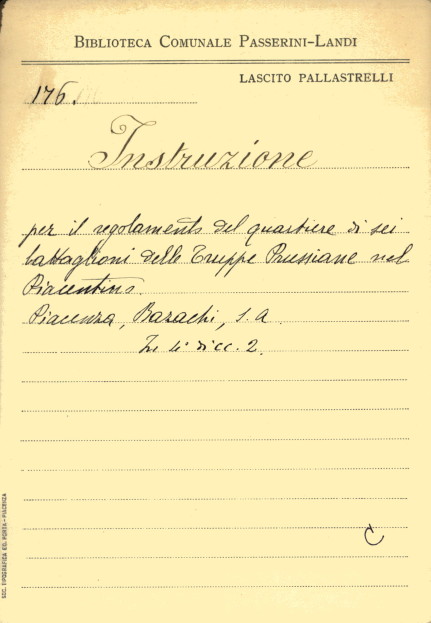 BIBLIOTECA COMUNALE PASSERINI-LANDI
LASCITO PALLASTRELLI
176.
Instruzione
per il regolamento del quartiere di sei
battaglioni delle Truppe Prussiane nel
Piacentino.
Piacenza, Bazachi, s. a.
In 4° di cc. 2.
C
SOC. TIPOGRAFICA ED. PORTA - PIACENZA